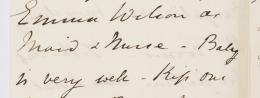 Emma Wilson as
Maid & Nurse - Baby
is very well - Kiss our